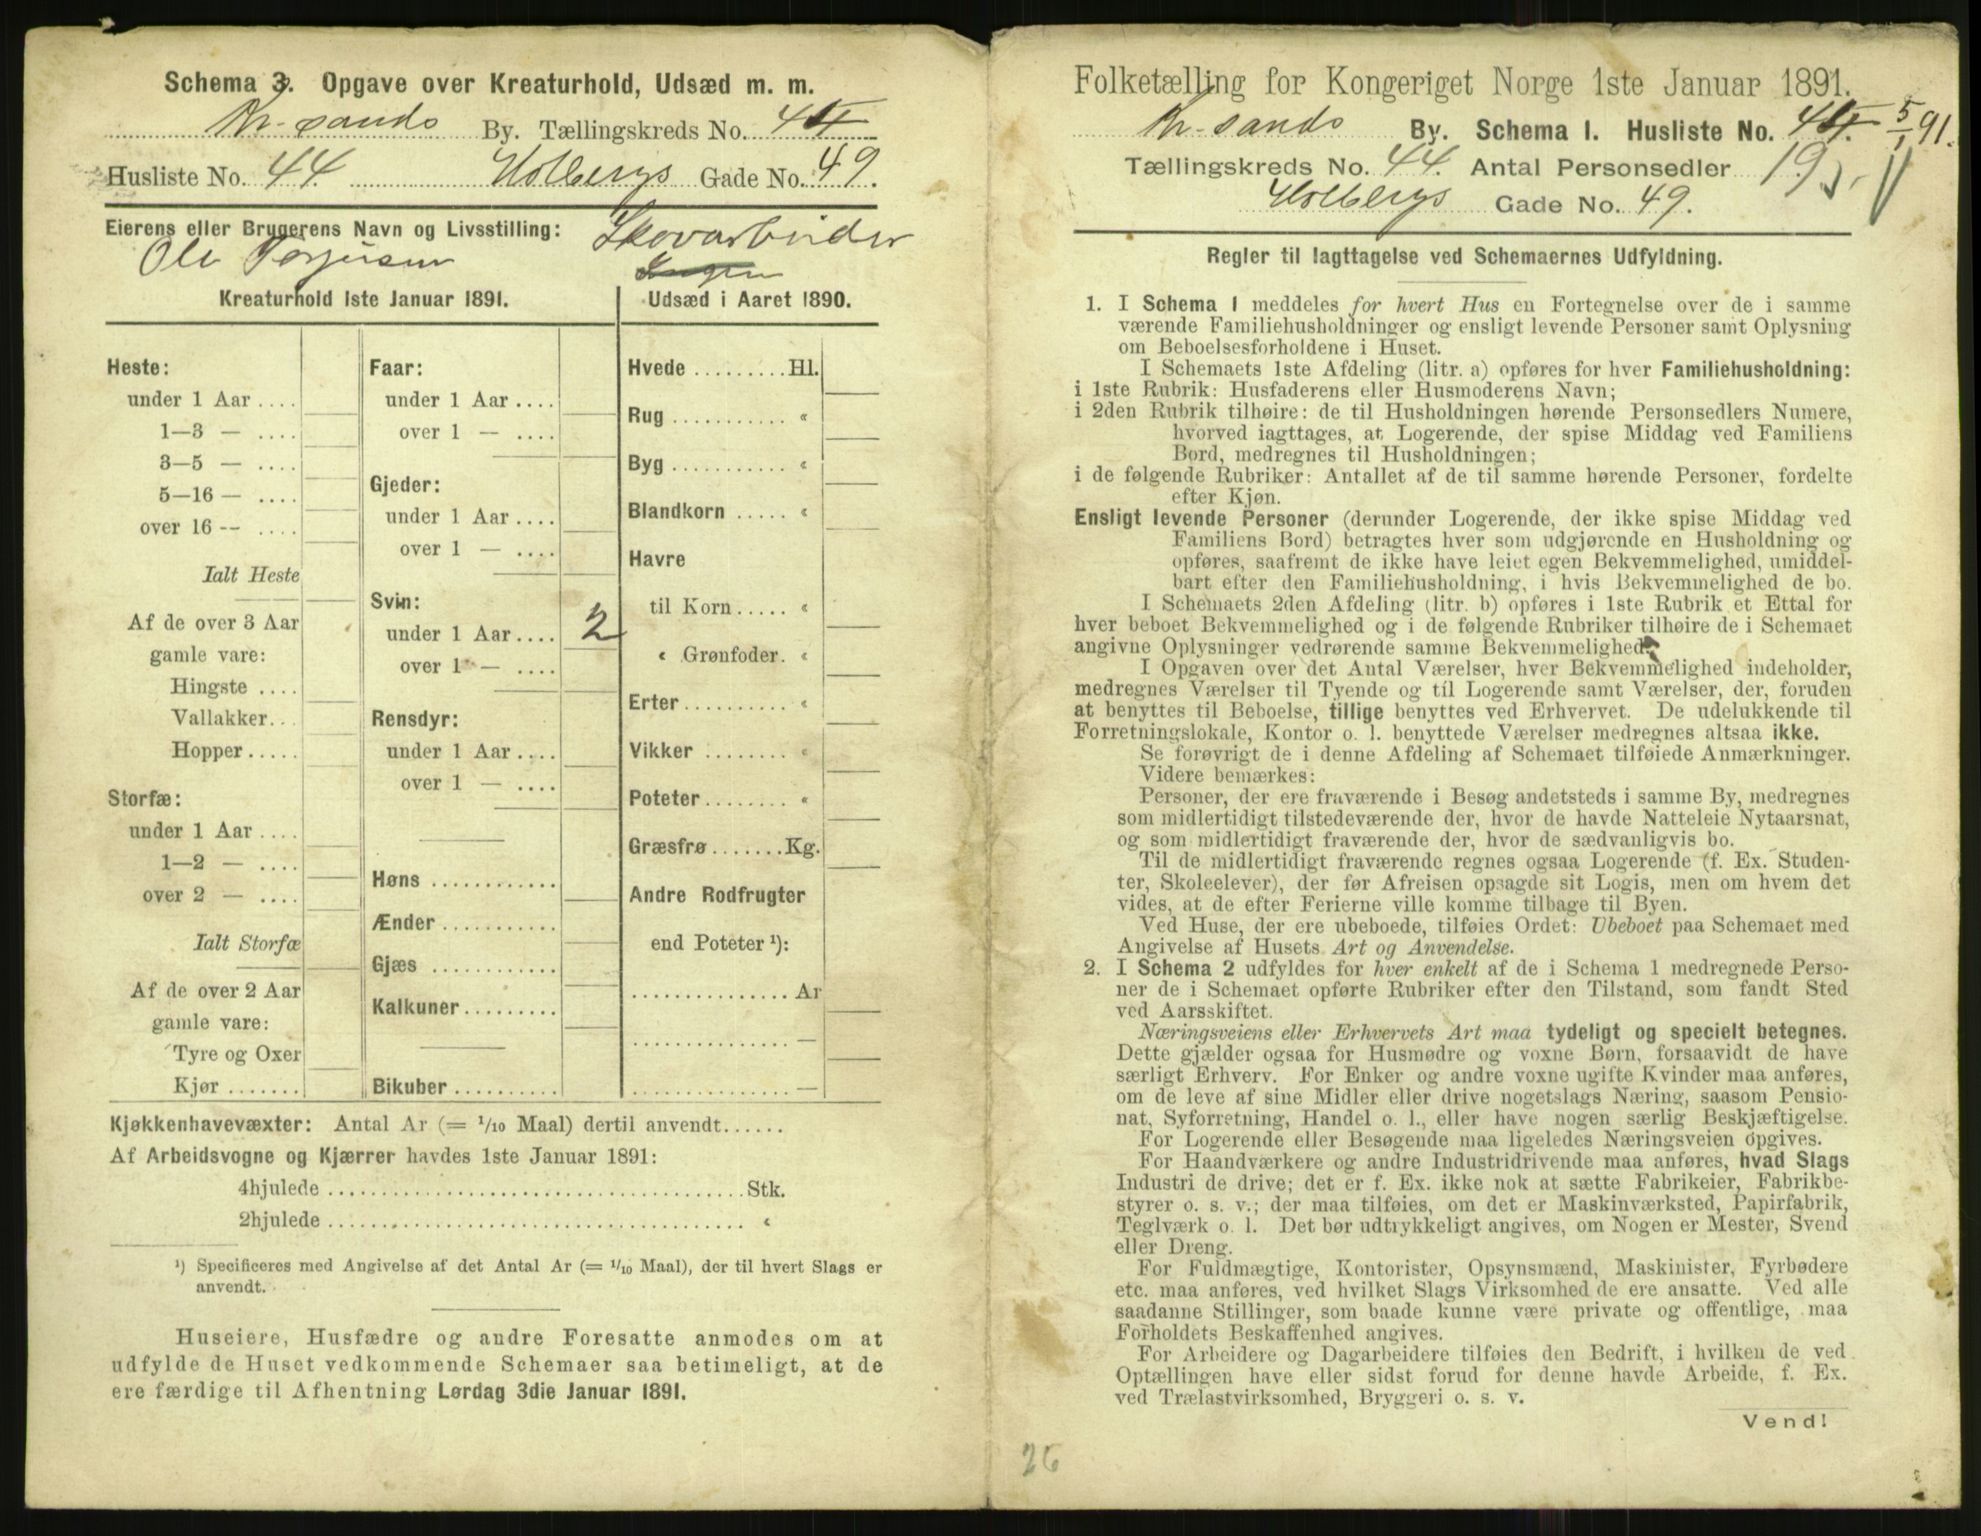 Schema 3. Opgave over Kreaturhold, Udsæd m. m.
Kr-sands By. Tællingskreds No. 44
Husliste No. 44. Holbergs Gade No. 49.
Eierens eller Brugerens Navn og Livsstilling: Skovarbeider
Ole Torjusen Ingen
Kreaturhold 1ste Januar 1891.
Heste:
under 1 Aar ....
1—3 — ....
3—5 — ....
5—16 — ....
over 16 — ....
Ialt Heste
Af de over 3 Aar
gamle vare:
Hingste ....
Vallakker...
Hopper.....
Storfæ:
under 1 Aar ....
1—2 — ....
over 2 — ....
Ialt Storfæ
Af de over 2 Aar
gamle vare:
Tyre og Oxer
Kjør .......
Faar:
under 1 Aar ....
over 1 — ....
Gjeder:
under 1 Aar ....
over 1 — ....
Svin:
under 1 Aar.... 2
over 1 — ....
Rensdyr:
under 1 Aar ....
over 1 — ....
Høns ............
Ænder ...........
Gjæs ............
Kalkuner.........
Bikuber..........
Udsæd i Aaret 1890.
Hvede .........Hl.
Rug ........... «
Byg ........... «
Blandkorn ..... «
Havre
til Korn..... «
« Grønfoder. «
Erter.......... «
Vikker ........ «
Poteter........ «
Græsfrø.......Kg.
Andre Rodfrugter
end Poteter ¹):
............... Ar
............... —
............... —
Kjøkkenhavevæxter: Antal Ar (= 1/10 Maal) dertil anvendt......
Af Arbeidsvogne og Kjærrer havdes 1ste Januar 1891:
4hjulede ....................................Stk.
2hjulede .................................... «
¹) Specificeres med Angivelse af det Antal Ar (= 1/10 Maal), der til hvert Slags er
anvendt.
Huseiere, Husfædre og andre Foresatte anmodes om at
udfylde de Huset vedkommende Schemaer saa betimeligt, at de
ere færdige til Afhentning Lørdag 3die Januar 1891.
Folketælling for Kongeriget Norge 1ste Januar 1891.
Kr-sands By. Schema 1. Husliste No. 44. 5/1 91.
Tællingskreds No. 44. Antal Personsedler 19
Holbergs Gade No. 49.
Regler til Iagttagelse ved Schemaernes Udfyldning.
1. I Schema 1 meddeles for hvert Hus en Fortegnelse over de i samme
værende Familiehusholdninger og ensligt levende Personer samt Oplysning
om Beboelsesforholdene i Huset.
I Schemaets 1ste Afdeling (litr. a) opføres for hver Familiehusholdning:
i 1ste Rubrik: Husfaderens eller Husmoderens Navn;
i 2den Rubrik tilhøire: de til Husholdningen hørende Personsedlers Numere,
hvorved iagttages, at Logerende, der spise Middag ved Familiens
Bord, medregnes til Husholdningen;
i de følgende Rubriker: Antallet af de til samme hørende Personer, fordelte
efter Kjøn.
Ensligt levende Personer (derunder Logerende, der ikke spise Middag ved
Familiens Bord) betragtes hver som udgjørende en Husholdning og
opføres, saafremt de ikke have leiet egen Bekvemmelighed, umiddel-
bart efter den Familiehusholdning, i hvis Bekvemmelighed de bo.
I Schemaets 2den Afdeling (litr. b) opføres i 1ste Rubrik et Ettal for
hver beboet Bekvemmelighed og i de følgende Rubriker tilhøire de i Schemaet
angivne Oplysninger vedrørende samme Bekvemmelighed.
I Opgaven over det Antal Værelser, hver Bekvemmelighed indeholder,
medregnes Værelser til Tyende og til Logerende samt Værelser, der, foruden
at benyttes til Beboelse, tillige benyttes ved Erhvervet. De udelukkende til
Forretningslokale, Kontor o. l. benyttede Værelser medregnes altsaa ikke.
Se forøvrigt de i denne Afdeling af Schemaet tilføiede Anmærkninger.
Videre bemærkes:
Personer, der ere fraværende i Besøg andetsteds i samme By, medregnes
som midlertidigt tilstedeværende der, hvor de havde Natteleie Nytaarsnat,
og som midlertidigt fraværende der, hvor de sædvanligvis bo.
Til de midlertidigt fraværende regnes ogsaa Logerende (f. Ex. Studen-
ter, Skoleelever), der før Afreisen opsagde sit Logis, men om hvem det
vides, at de efter Ferierne ville komme tilbage til Byen.
Ved Huse, der ere ubeboede, tilføies Ordet: Ubeboet paa Schemaet med
Angivelse af Husets Art og Anvendelse.
2. I Schema 2 udfyldes for hver enkelt af de i Schema 1 medregnede Perso-
ner de i Schemaet opførte Rubriker efter den Tilstand, som fandt Sted
ved Aarsskiftet.
Næringsveiens eller Erhvervets Art maa tydeligt og specielt betegnes.
Dette gjælder ogsaa for Husmødre og voxne Børn, forsaavidt de have
særligt Erhverv. For Enker og andre voxne ugifte Kvinder maa anføres,
om de leve af sine Midler eller drive nogetslags Næring, saasom Pensio-
nat, Syforretning, Handel o. l., eller have nogen særlig Beskjæftigelse.
For Logerende eller Besøgende maa ligeledes Næringsveien opgives.
For Haandværkere og andre Industridrivende maa anføres, hvad Slags
Industri de drive; det er f. Ex. ikke nok at sætte Fabrikeier, Fabrikbe-
styrer o. s. v.; der maa tilføies, om det er Maskinværksted, Papirfabrik,
Teglværk o. l. Det bør udtrykkeligt angives, om Nogen er Mester, Svend
eller Dreng.
For Fuldmægtige, Kontorister, Opsynsmænd, Maskinister, Fyrbødere
etc. maa anføres, ved hvilket Slags Virksomhed de ere ansatte. Ved alle
saadanne Stillinger, som baade kunne være private og offentlige, maa
Forholdets Beskaffenhed angives.
For Arbeidere og Dagarbeidere tilføies den Bedrift, i hvilken de ved
Optællingen have eller sidst forud for denne havde Arbeide, f. Ex.
ved Trælastvirksomhed, Bryggeri o. s. v.
Vend!
26